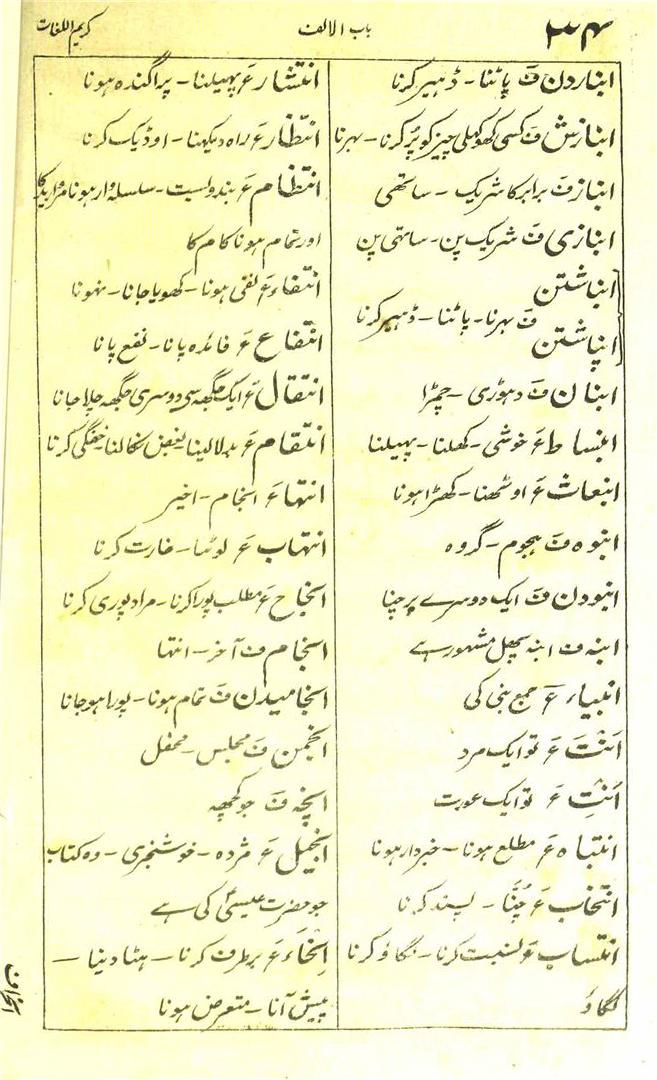 ۳۴
باب الالف
کریم اللغات
انباردن ف پاٹنا۔ ڈہیر کرنا
انبازش ف کسی کھوکھلی چیز کو پُر کرنا۔ بہرنا
انباز ف برابر کا شریک ۔ ساتھی
انبازی ف شریک پن۔ ساتہی پن
انباشتن
انپاشتن
ف بہرنا۔ پاٹنا۔ ڈہیر کرنا
انبان ف دہوڑی ۔ چمڑا
انبساط ع خوشی۔ کھلنا۔ پہیلنا
انبعاث ع اوٹھنا۔ کھڑا ہونا
انبوہ ف ہجوم۔ گروہ
انبودن ف ایک دوسرے پر چننا
انبہ ف انبہ پہل مشہور ہے
انبیاء ع جمع نبی کی
اَنْتَ ع تو ایک مرد
اَنْتِ ع تو ایک عورت
انتباہ ع مطلع ہونا۔ خبردار ہونا
انتخاب ع چُننا ۔ پسند کرنا
انتساب ع نسبت کرنا۔ لگاؤ کرنا
لگاؤ
انتشار ع پہیلنا۔ پراگندہ ہونا
انتظار ع راہ دیکہنا۔ اوڈیک کرنا
انتظام ع بندوبست۔ سلسلہ وار ہونا
اور تمام ہونا کام کا
انتفاء ع نفی ہونا۔ کھویا جانا۔ نہونا
انتفاع ع فائدہ پانا۔ نفع پانا
انتقال ع ایک جگہہ سی دوسری جگہہ چلا جانا
انتقام ع بدلا لینا بغض نکالنا۔ خفگی کرنا
انتہاء ع انجام۔ اخیر
انتہاب ع لوٹنا۔ غارت کرنا
انجاح ع مطلب پورا کرنا۔ مراد پوری کرنا
انجام ف آخر۔ انتہا
انجامیدن ف تمام ہونا۔ پورا ہوجانا
انجمن ف مجلس۔ محفل
انچہ ف جو کچھہ
انجیل ع مژدہ ۔ خوشخبری ۔ وہ کتاب
جو حضرت عیسیٰ کی ہے
اِنْحَاء ع برطرف کرنا۔ ہٹا دینا۔
پیش آنا۔ متعرض ہونا